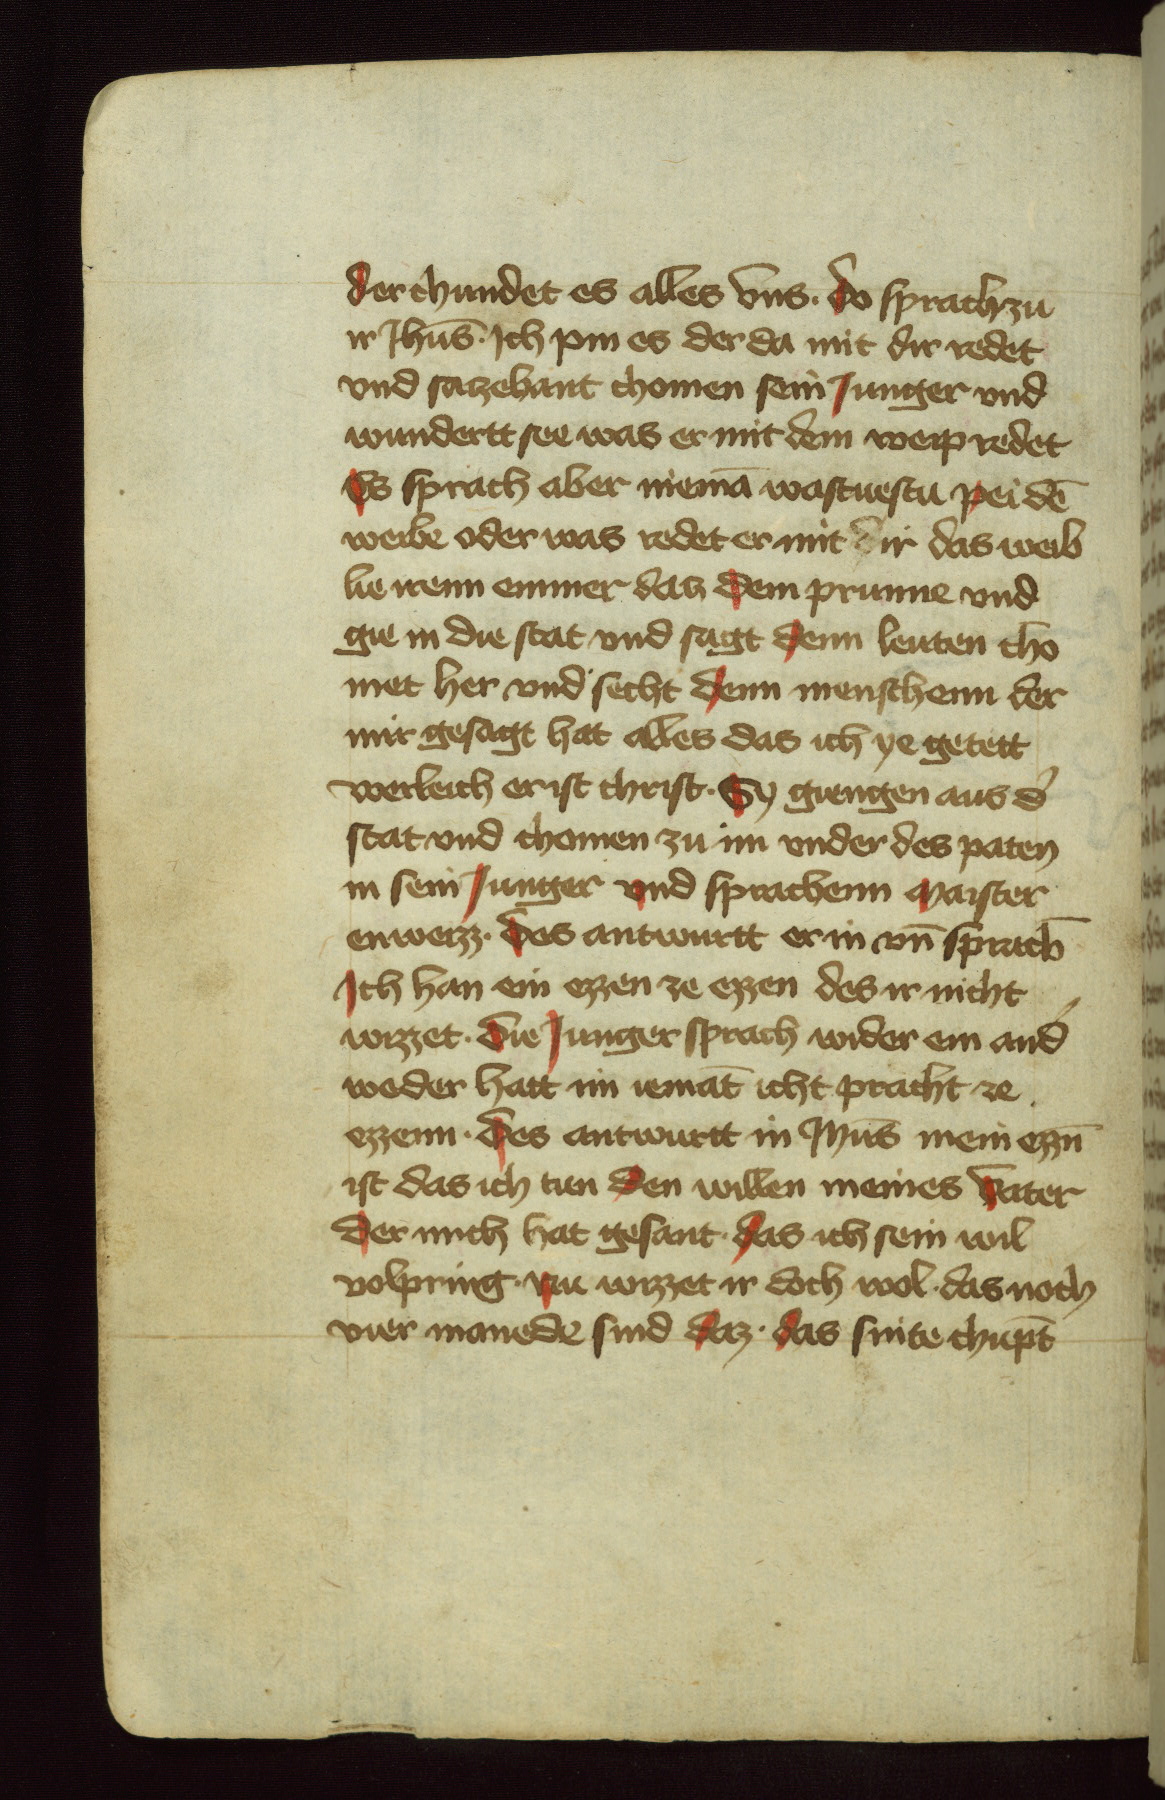 der chundet es alles vns. do sprach zu
ir Jhūs. Ich pin es der da mit dir redet
vnd sazehant chomen sein Junger vnd
wundertt see was er mit dem weip redet
Es sprach aber niemā was tuestu pei dē
weibe oder was redet er mit dir das weib
lie irenn emmer datz dem prunne vnd
gie in die stat vnd sagt denn leuten cho
met her vnd secht denn menschenn der
mir gesagt hat alles das ich ye getett
werleich er ist christ. Sy giengen aus d'
stat vnd chomen zu im vnder des paten
in sein Junger vnd sprachenn Maister
enweizz. Des antwurtt er in vn̄ sprach
Ich han ein ezzen ze ezzen des ir nicht
wizzet. Die Junger sprach wider ein and'
weder hatt im iemāt icht pracht ze
ezzenn. Des antwurtt in Jhūs mein ezzn̄
ist das ich tun den willen meines vater
der mich hat gesant. das ich sein wil
volpring. Nu wizzet ir doch wol. das noch
vier manede sind daz. das snite chūpt